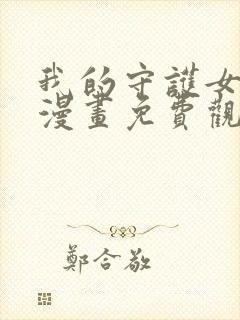 我的守護女
漫畫免費觀
鄭合敬